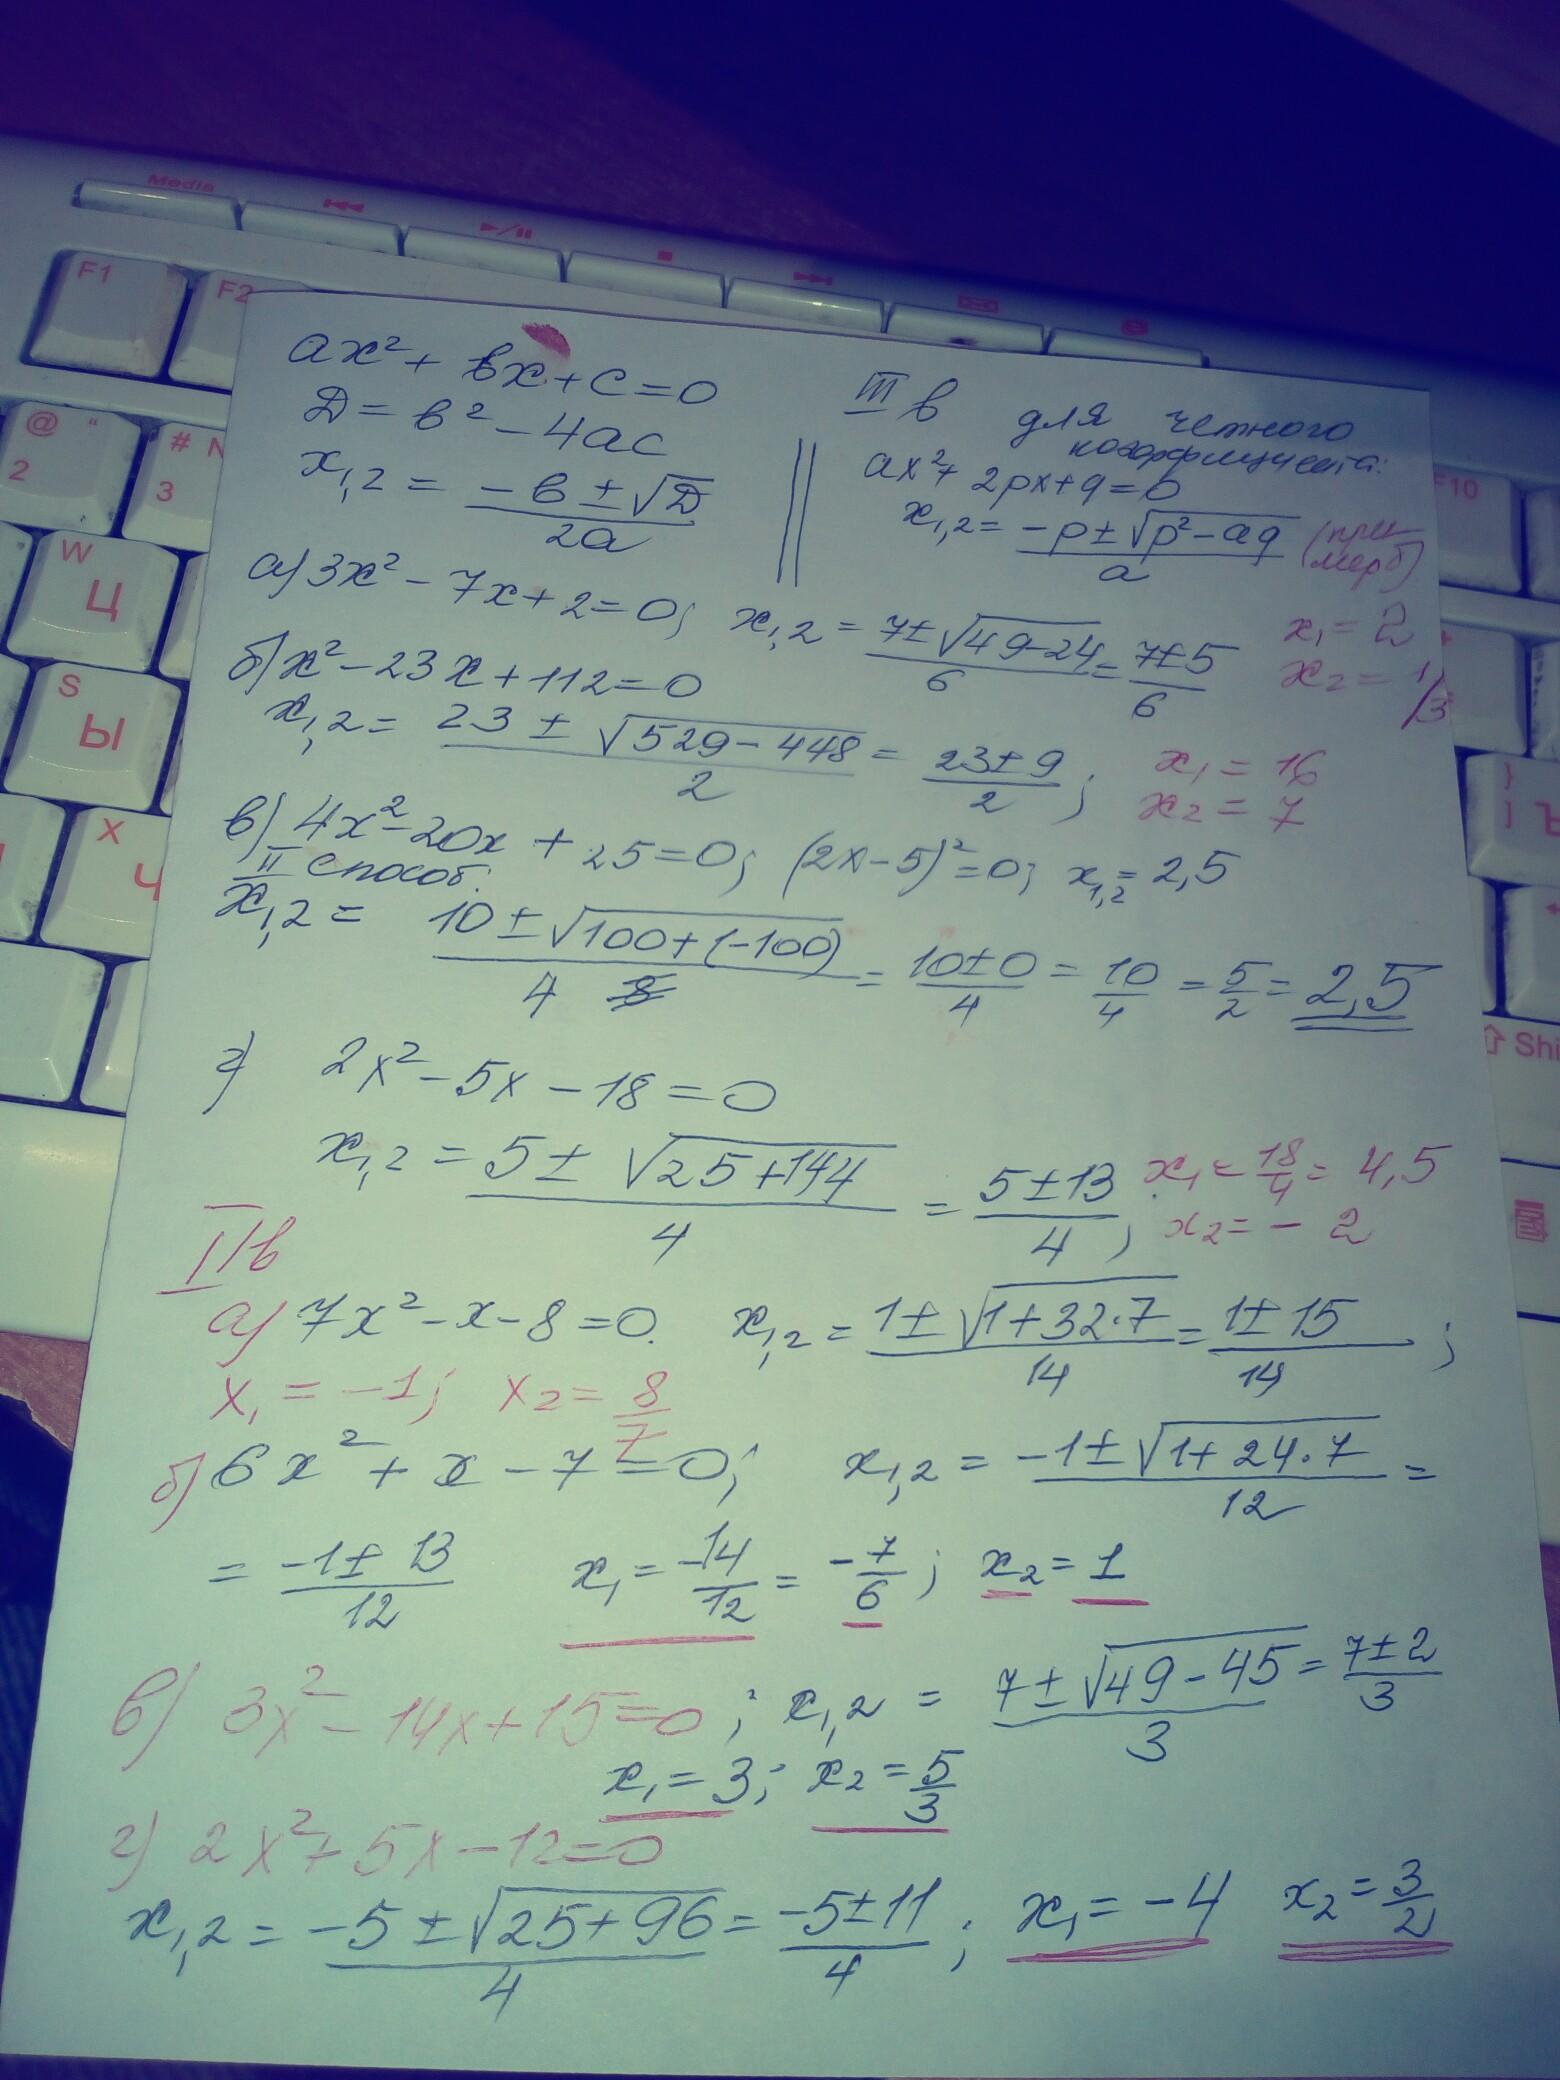 Media
F1
F2
@ "
2
# N
3
F10
W
Ц
S
Ы
X
Ч
}
]
Ъ
Shi
ax² + bx + c = 0
D = b² - 4ac
x₁,₂ = (-b ± √D)/2a
III в для четного
коэффициента:
ax² + 2px + q = 0
x₁,₂ = (-p ± √(p² - aq))/a (пример б)
а) 3x² - 7x + 2 = 0; x₁,₂ = (7 ± √(49-24))/6 = (7±5)/6 x₁ = 2
x₂ = 1/3
б) x² - 23x + 112 = 0
x₁,₂ = (23 ± √(529 - 448))/2 = (23±9)/2; x₁ = 16
x₂ = 7
в) 4x² - 20x + 25 = 0; (2x - 5)² = 0; x₁,₂ = 2,5
II способ:
x₁,₂ = (10 ± √(100 + (-100)))/4 8 = (10±0)/4 = 10/4 = 5/2 = 2,5
г) 2x² - 5x - 18 = 0
x₁,₂ = (5 ± √(25 + 144))/4 = (5±13)/4; x₁ = 18/4 = 4,5
x₂ = - 2
II в
а) 7x² - x - 8 = 0. x₁,₂ = (1 ± √(1 + 32·7))/14 = (1±15)/14;
x₁ = -1; x₂ = 8/7
б) 6x² + x - 7 = 0; x₁,₂ = (-1 ± √(1 + 24·7))/12 =
= (-1 ± 13)/12 x₁ = -14/12 = -7/6; x₂ = 1
в) 3x² - 14x + 15 = 0; x₁,₂ = (7 ± √(49 - 45))/3 = (7±2)/3
x₁ = 3; x₂ = 5/3
г) 2x² + 5x - 12 = 0
x₁,₂ = (-5 ± √(25 + 96))/4 = (-5±11)/4; x₁ = -4 x₂ = 3/2